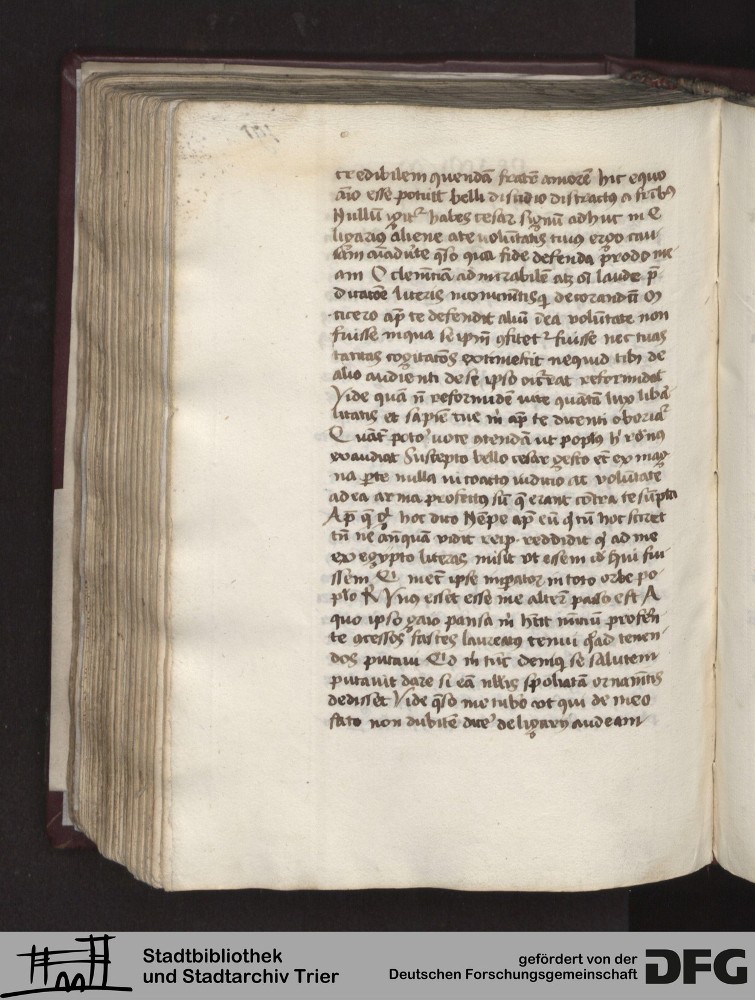 credibilem quendā fratrē amorē hic equo
aīo esse potuit belli disidio distractꝰ a fribꝰ
Nullū igitʳ habes cesar signū adhuc in Q
ligario aliene a te volūtatis cuiꝰ ego cau
sam aīaduerte q̄so qua fide defendā prodo me
am O clemētiā admirabilē atqꝫ oī laude p̄
dicatōe literis monumētisqꝫ decorandū M
cicero apᵈ te defendit aliū ī ea volūtate non
fuisse in qua se ipm̄ ꝯfitetʳ fuisse nec tuas
tacitas cogitatōs extimescit nec quid tibi de
alio audienti de se ipso occʳrat reformidat
Vide quā nō reformidē vide quāta lux liba
litatis et sapiē tue m̄ apᵈ te dicenti oboriaʳ
Quāt poto voce ꝯtendā ut poplꝰ hᶜ roꝰ
exaudiat Suscepto bello cesar gesto etiā ex mag
na parte nulla ui coactꝰ iudicio ac volūtate
ad ea arma profectꝰ sū q̄ erant cōtra te sūpta
Apᵈ quē hoc dico Nēpe apᵈ eū qui cū hoc sciret
tn̄ me anteqᵃ vidit reip. reddidit qui ad me
ex egypto literas misit vt essem idē qui fui
ssem Qui me cū ipse imꝑator in toto orbe po
pli R vnus esset esse me alterū passo est A
quo ipso gaio pansa m̄ hūc nūciū perferē
te ꝯcessos fasces laureatos tenui quoad tenen
dos putaui Qui m̄ tūc deniqꝫ se salutem
putauit dare si eā nullis spoliatā ornamētis
dedisset Vide q̄so me tubero vt qui de meo
facto non dubitē dicere de ligarii audeam
Stadtbibliothek
und Stadtarchiv Trier
gefördert von der
Deutschen Forschungsgemeinschaft
DFG